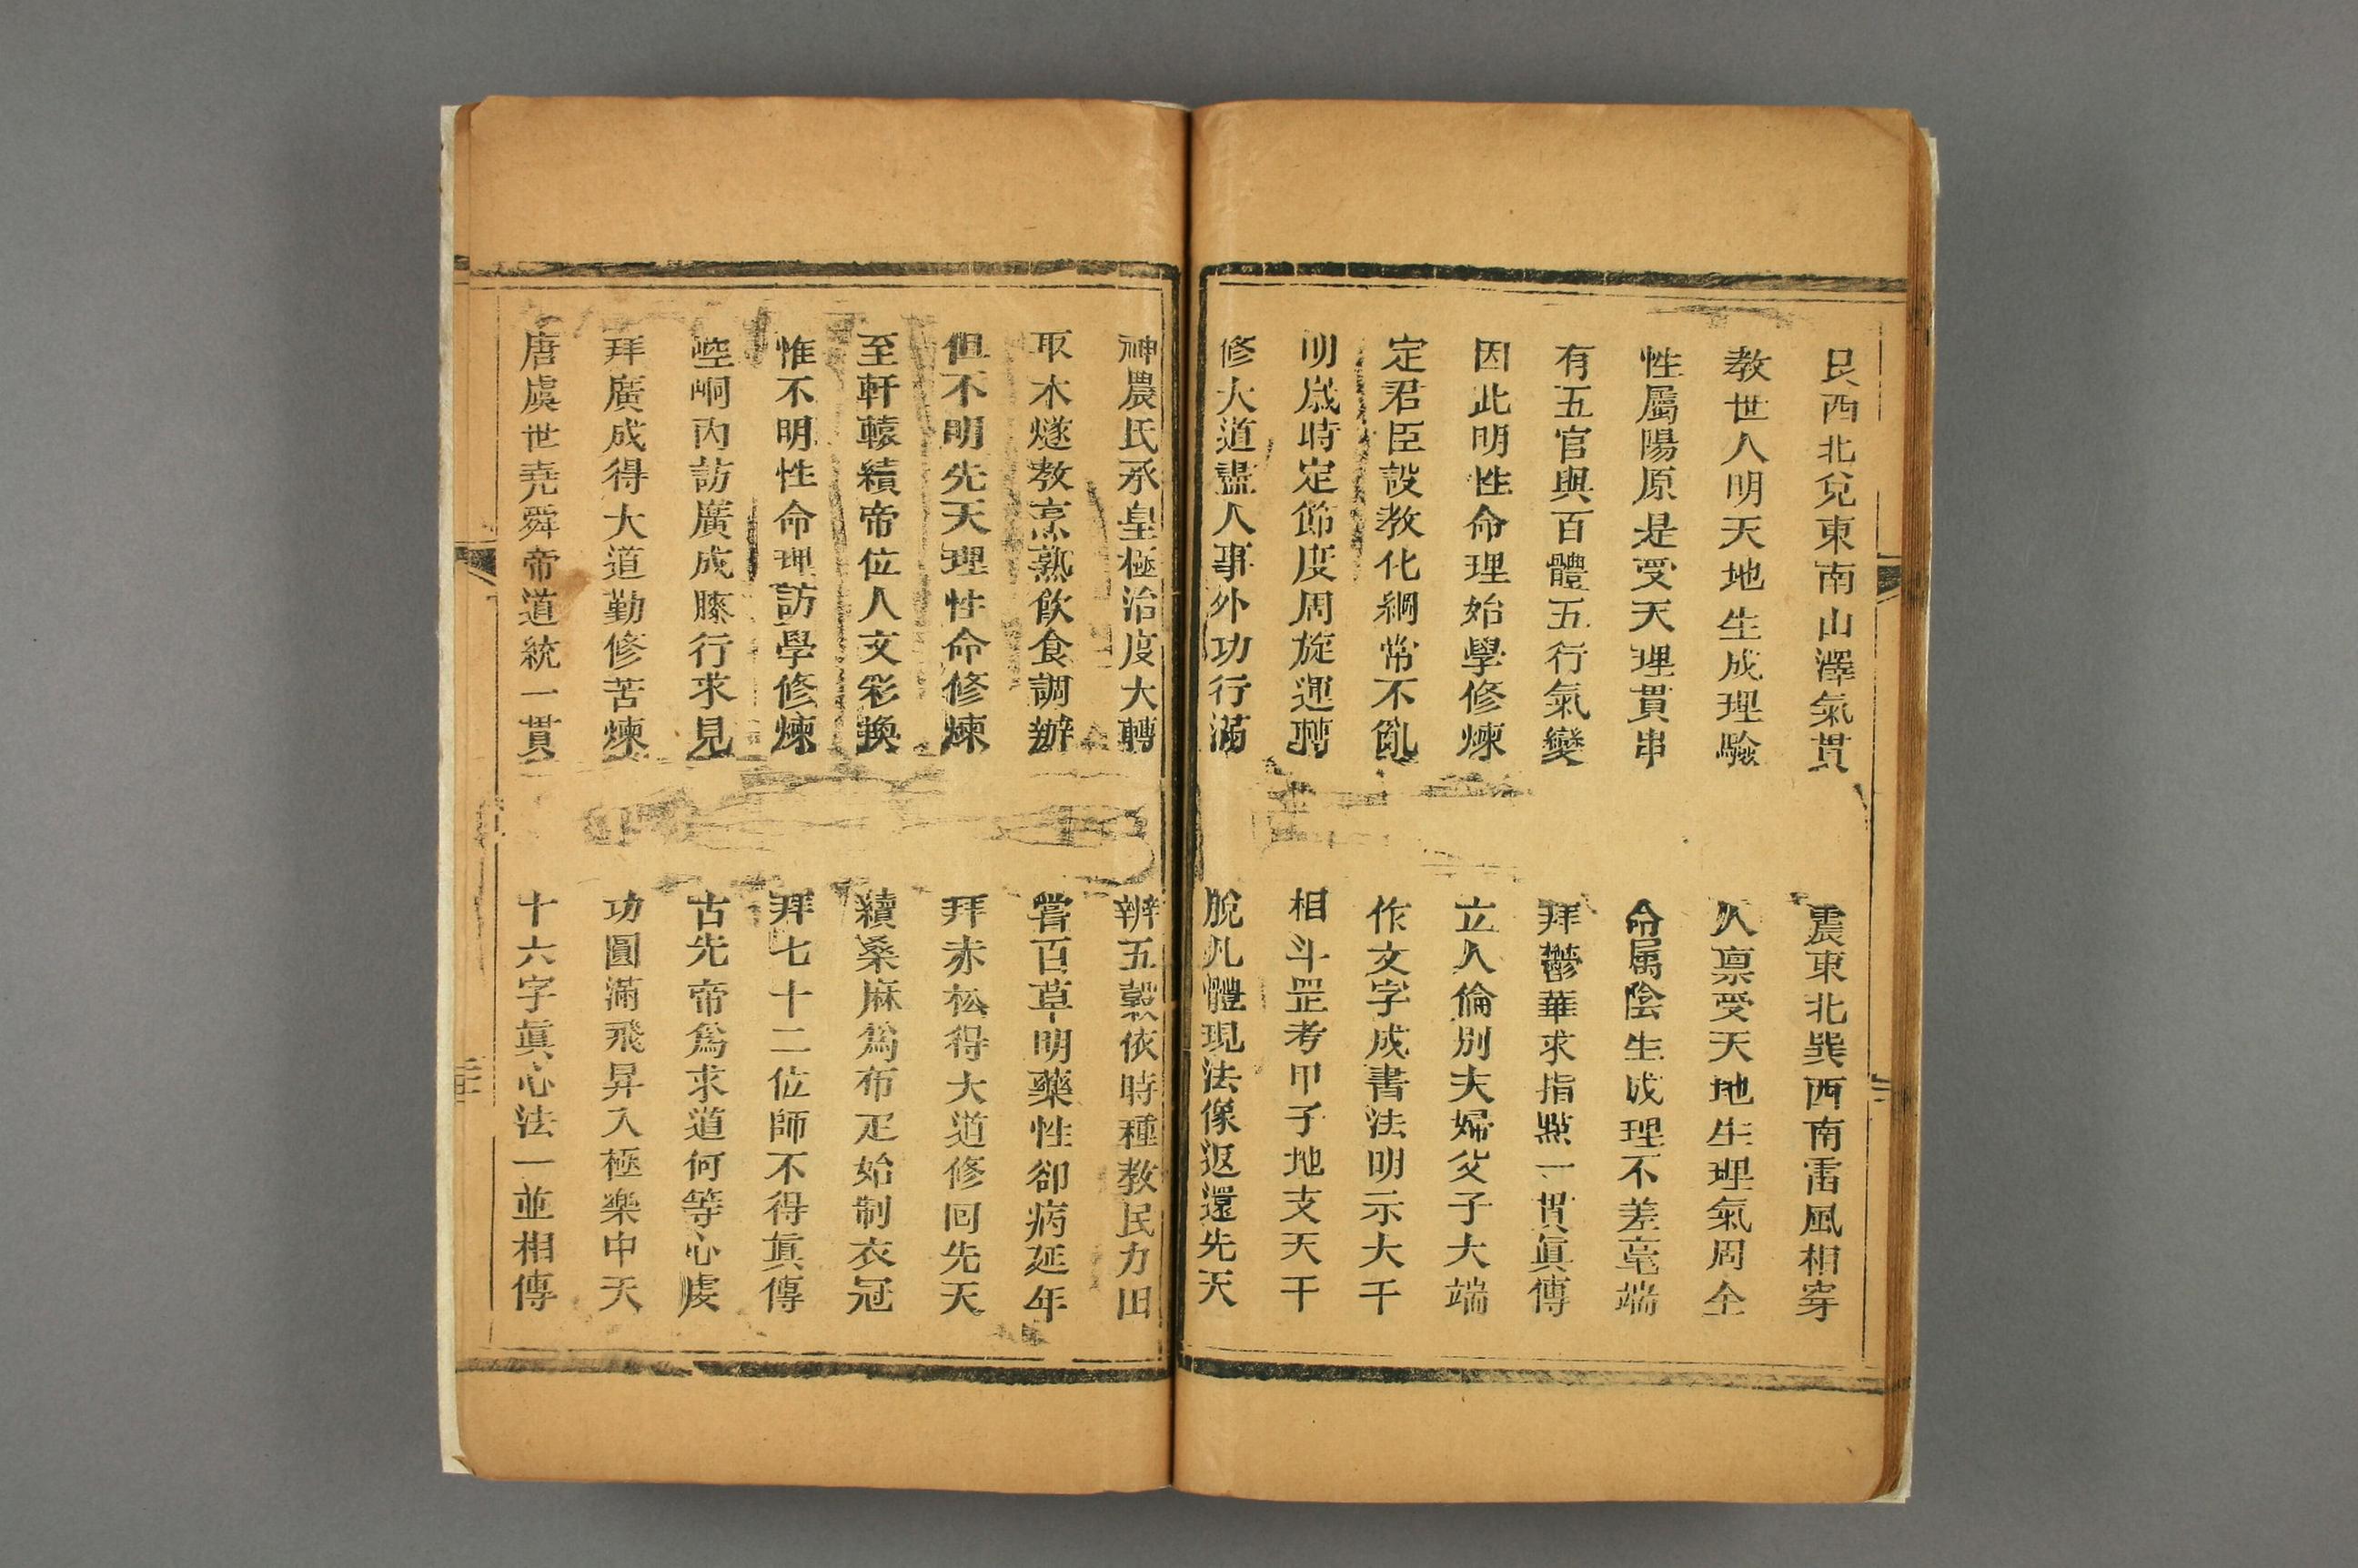 艮西北兌東南山澤氣貫　震東北巽西南雷風相穿
教世人明天地生成理驗　人禀受天地生理氣周全
性屬陽原是受天理貫串　命属陰生成理不差毫端
有五官與百體五行氣變　拜鬱華求指點一貫眞傳
因此明性命理始學修煉　立人倫別夫婦父子大端
定君臣設教化綱常不亂　作文字成書法明示大千
明歲時定節度周旋運轉　相斗罡考甲子地支天干
修大道盡人事外功行滿　脫凡體現法像返還先天
神農氏承皇極治度大轉　辨五穀依時種教民力田
取木燧教烹熟飲食調辦　嘗百草明藥性卻病延年
但不明先天理性命修煉　拜赤松得大道修回先天
至軒轅續帝位人文彩換　續桑麻爲布疋始制衣冠
惟不明性命理訪學修煉　拜七十二位師不得眞傳
崆峒内訪廣成膝行求見　古先帝爲求道何等心虔
拜廣成得大道勤修苦煉　功圓滿飛昇入極樂中天
唐虞世堯舜帝道統一貫　十六字眞心法一並相傳